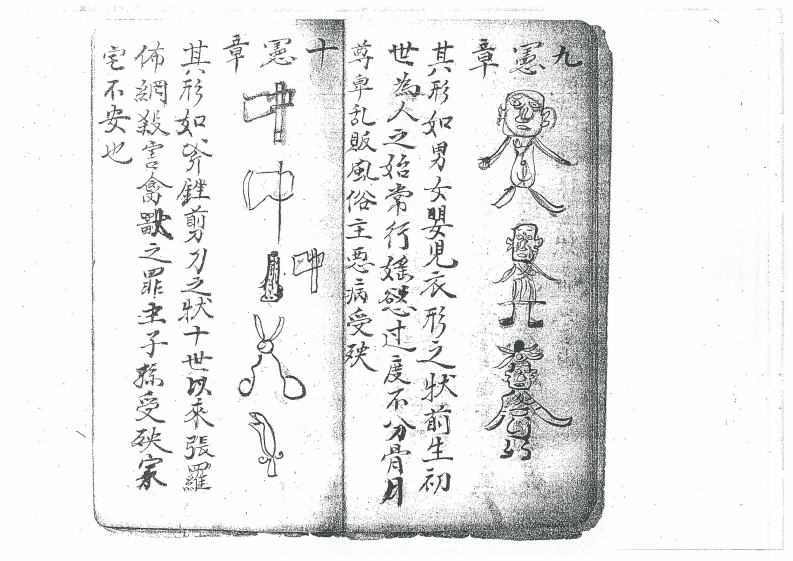 九憲章
其形如男女嬰児衣形之状前生初
世為人之始常行媱慾过度不分骨月
尊卑乱敗風俗主悪病受殃
十憲章
其形如斧錐剪刀之状十世以來張羅
佈網殺害禽獸之罪主子孫受殃家
宅不安也